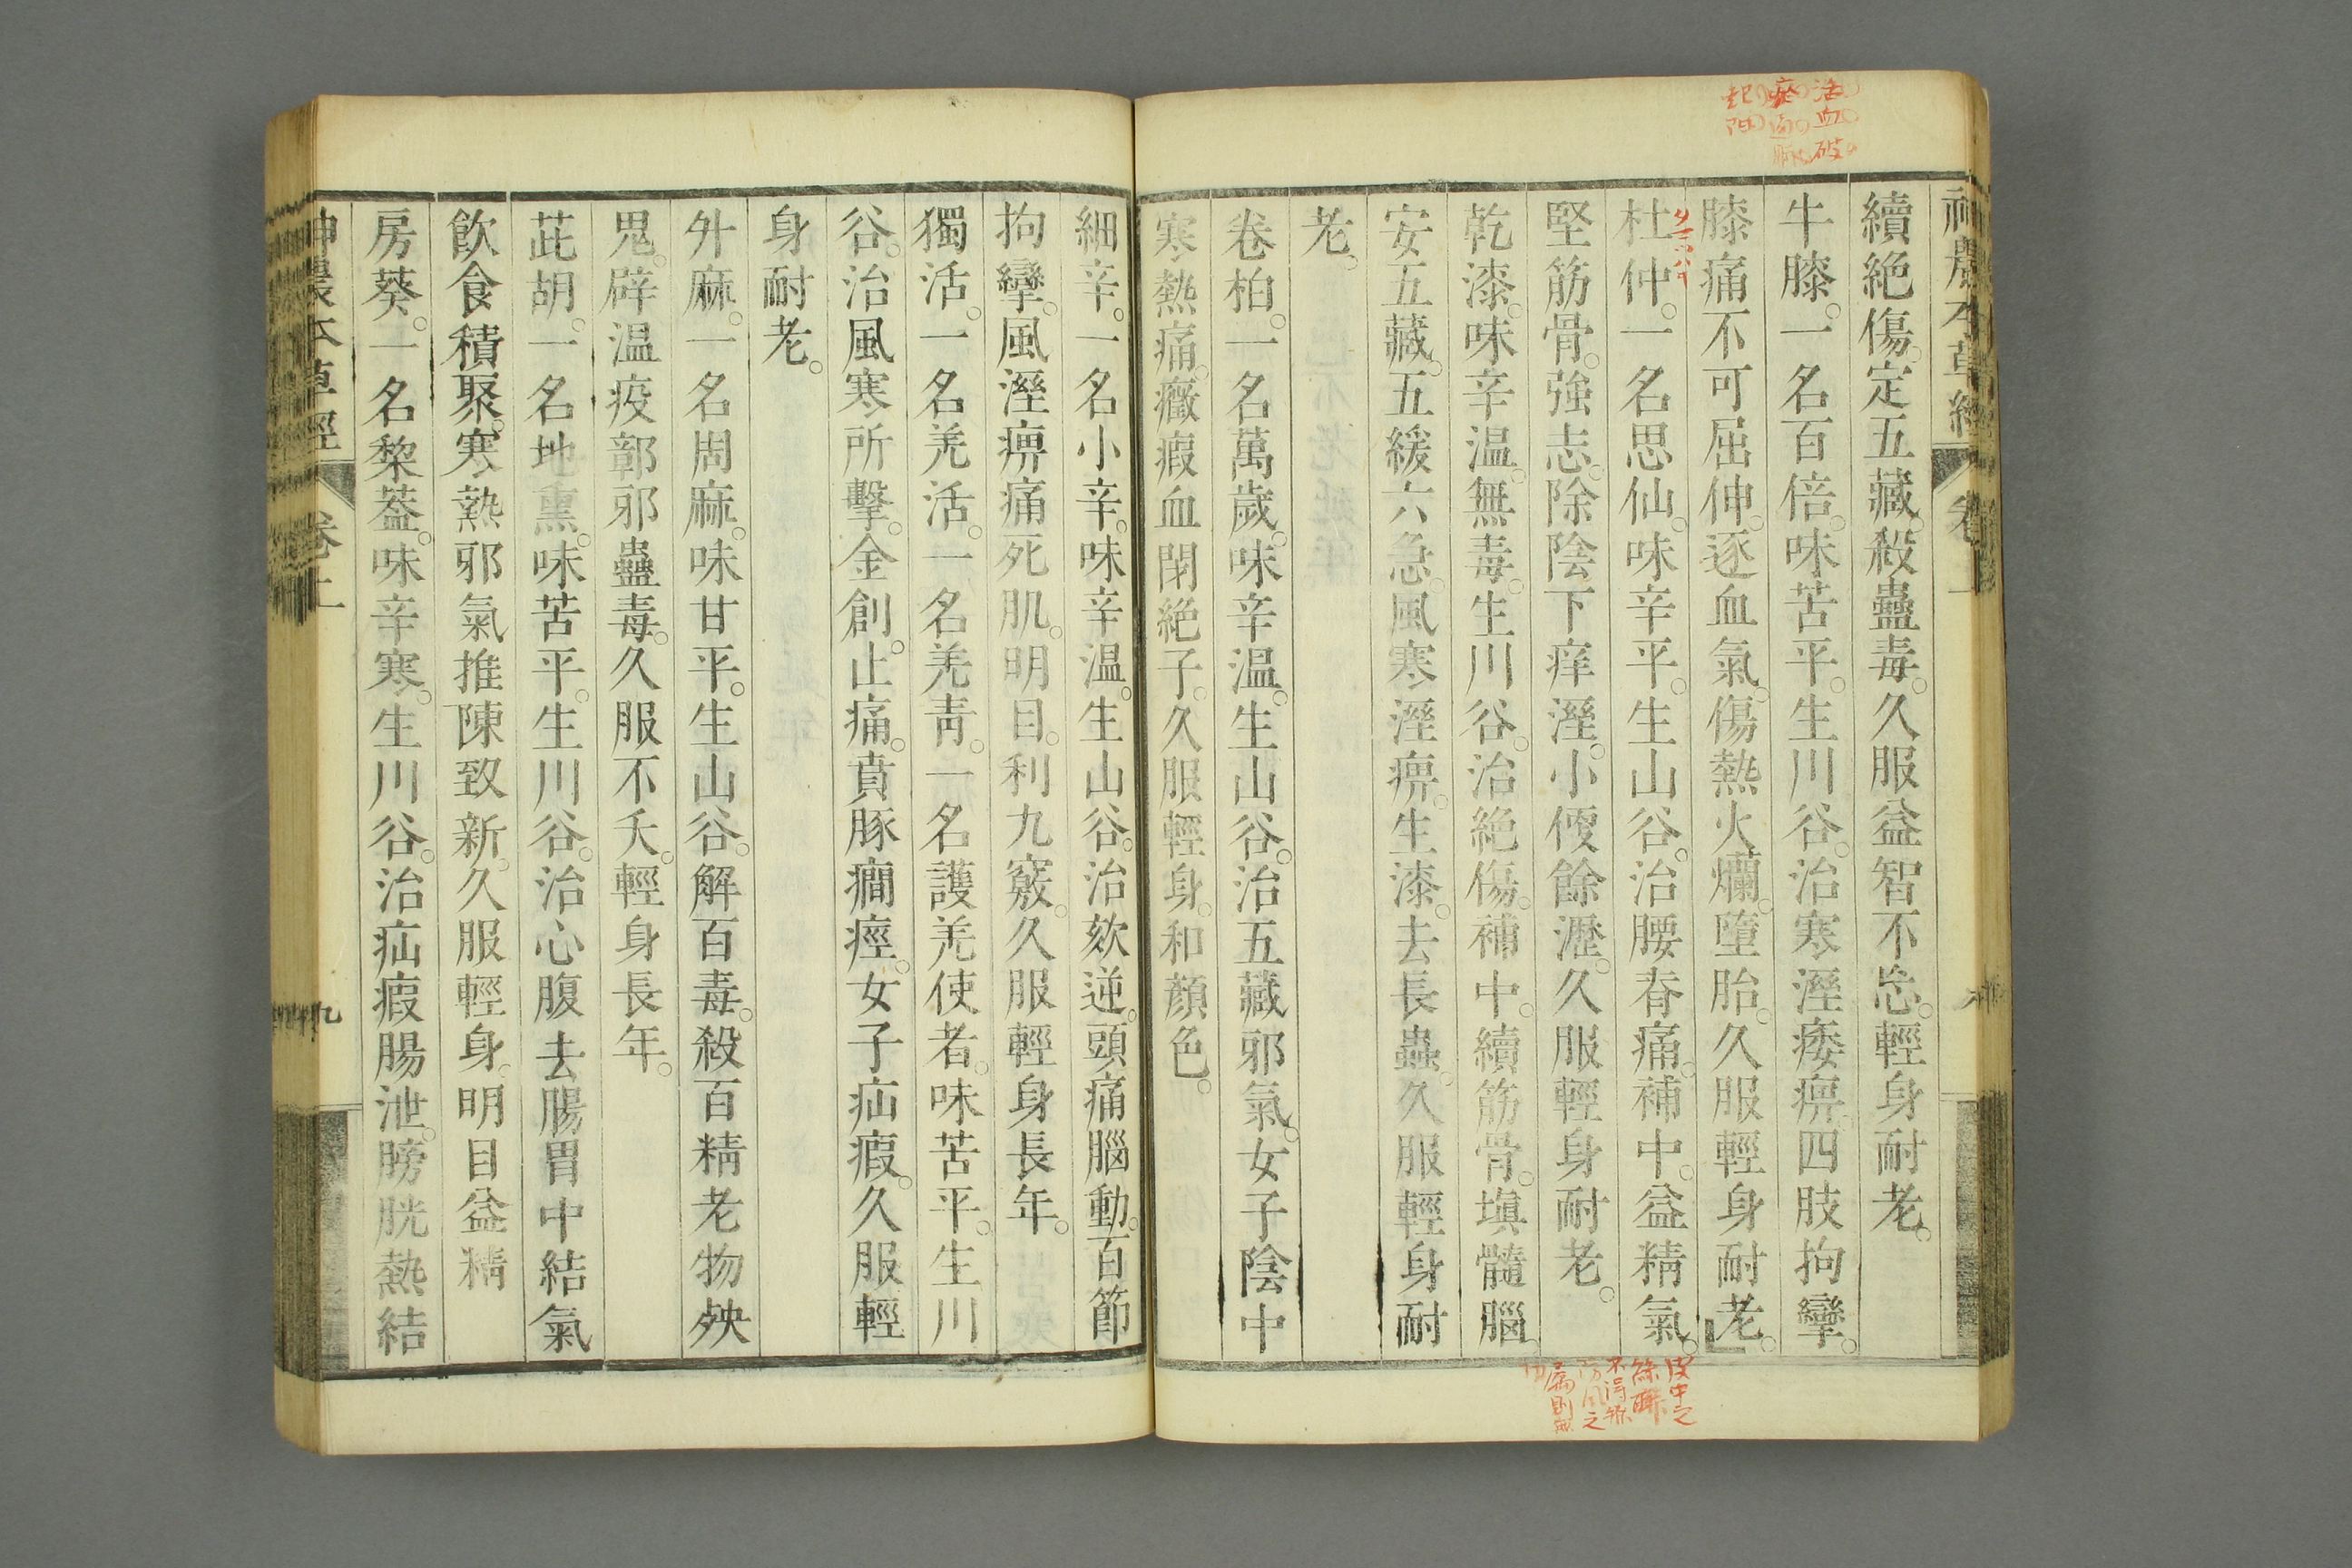 活血破
瘀
起阳
續絕傷。定五藏。殺蠱毒。久服益智不忘。輕身耐老。
牛膝。一名百倍。味苦平。生川谷。治寒溼痿痹。四肢拘攣。
膝痛不可屈伸。逐血氣。傷熱火爛。墮胎。久服輕身耐老。
杜仲。一名思仙。味辛平。生山谷。治腰脊痛。補中。益精氣。
堅筋骨。強志。除陰下痒溼。小便餘瀝。久服輕身耐老。
乾漆。味辛温。無毒。生川谷。治絕傷。補中。續筋骨。塡髓腦。
安五藏。五緩六急。風寒溼痹。生漆。去長蟲。久服輕身耐
老。
卷柏。一名萬歲。味辛温。生山谷。治五藏邪氣。女子陰中
寒熱痛。癥瘕血閉絕子。久服輕身。和顏色。
皮中之
絲聯
不得
防風之
屬則
細辛。一名小辛。味辛温。生山谷。治欬逆。頭痛腦動。百節
拘攣。風溼痹痛死肌。明目。利九竅。久服輕身長年。
獨活。一名羌活。一名羌靑。一名護羌使者。味苦平。生川
谷。治風寒所擊。金創。止痛。賁豚癎痙。女子疝瘕。久服輕
身耐老。
升麻。一名周麻。味甘平。生山谷。解百毒。殺百精老物殃
鬼。辟温疫鄣邪蠱毒。久服不夭。輕身長年。
茈胡。一名地熏。味苦平。生川谷。治心腹去腸胃中結氣
飲食積聚。寒熱邪氣推陳致新。久服輕身。明目益精
房葵。一名棃葢。味辛寒。生川谷。治疝瘕腸泄。膀胱熱結
神農本草經 卷上 九